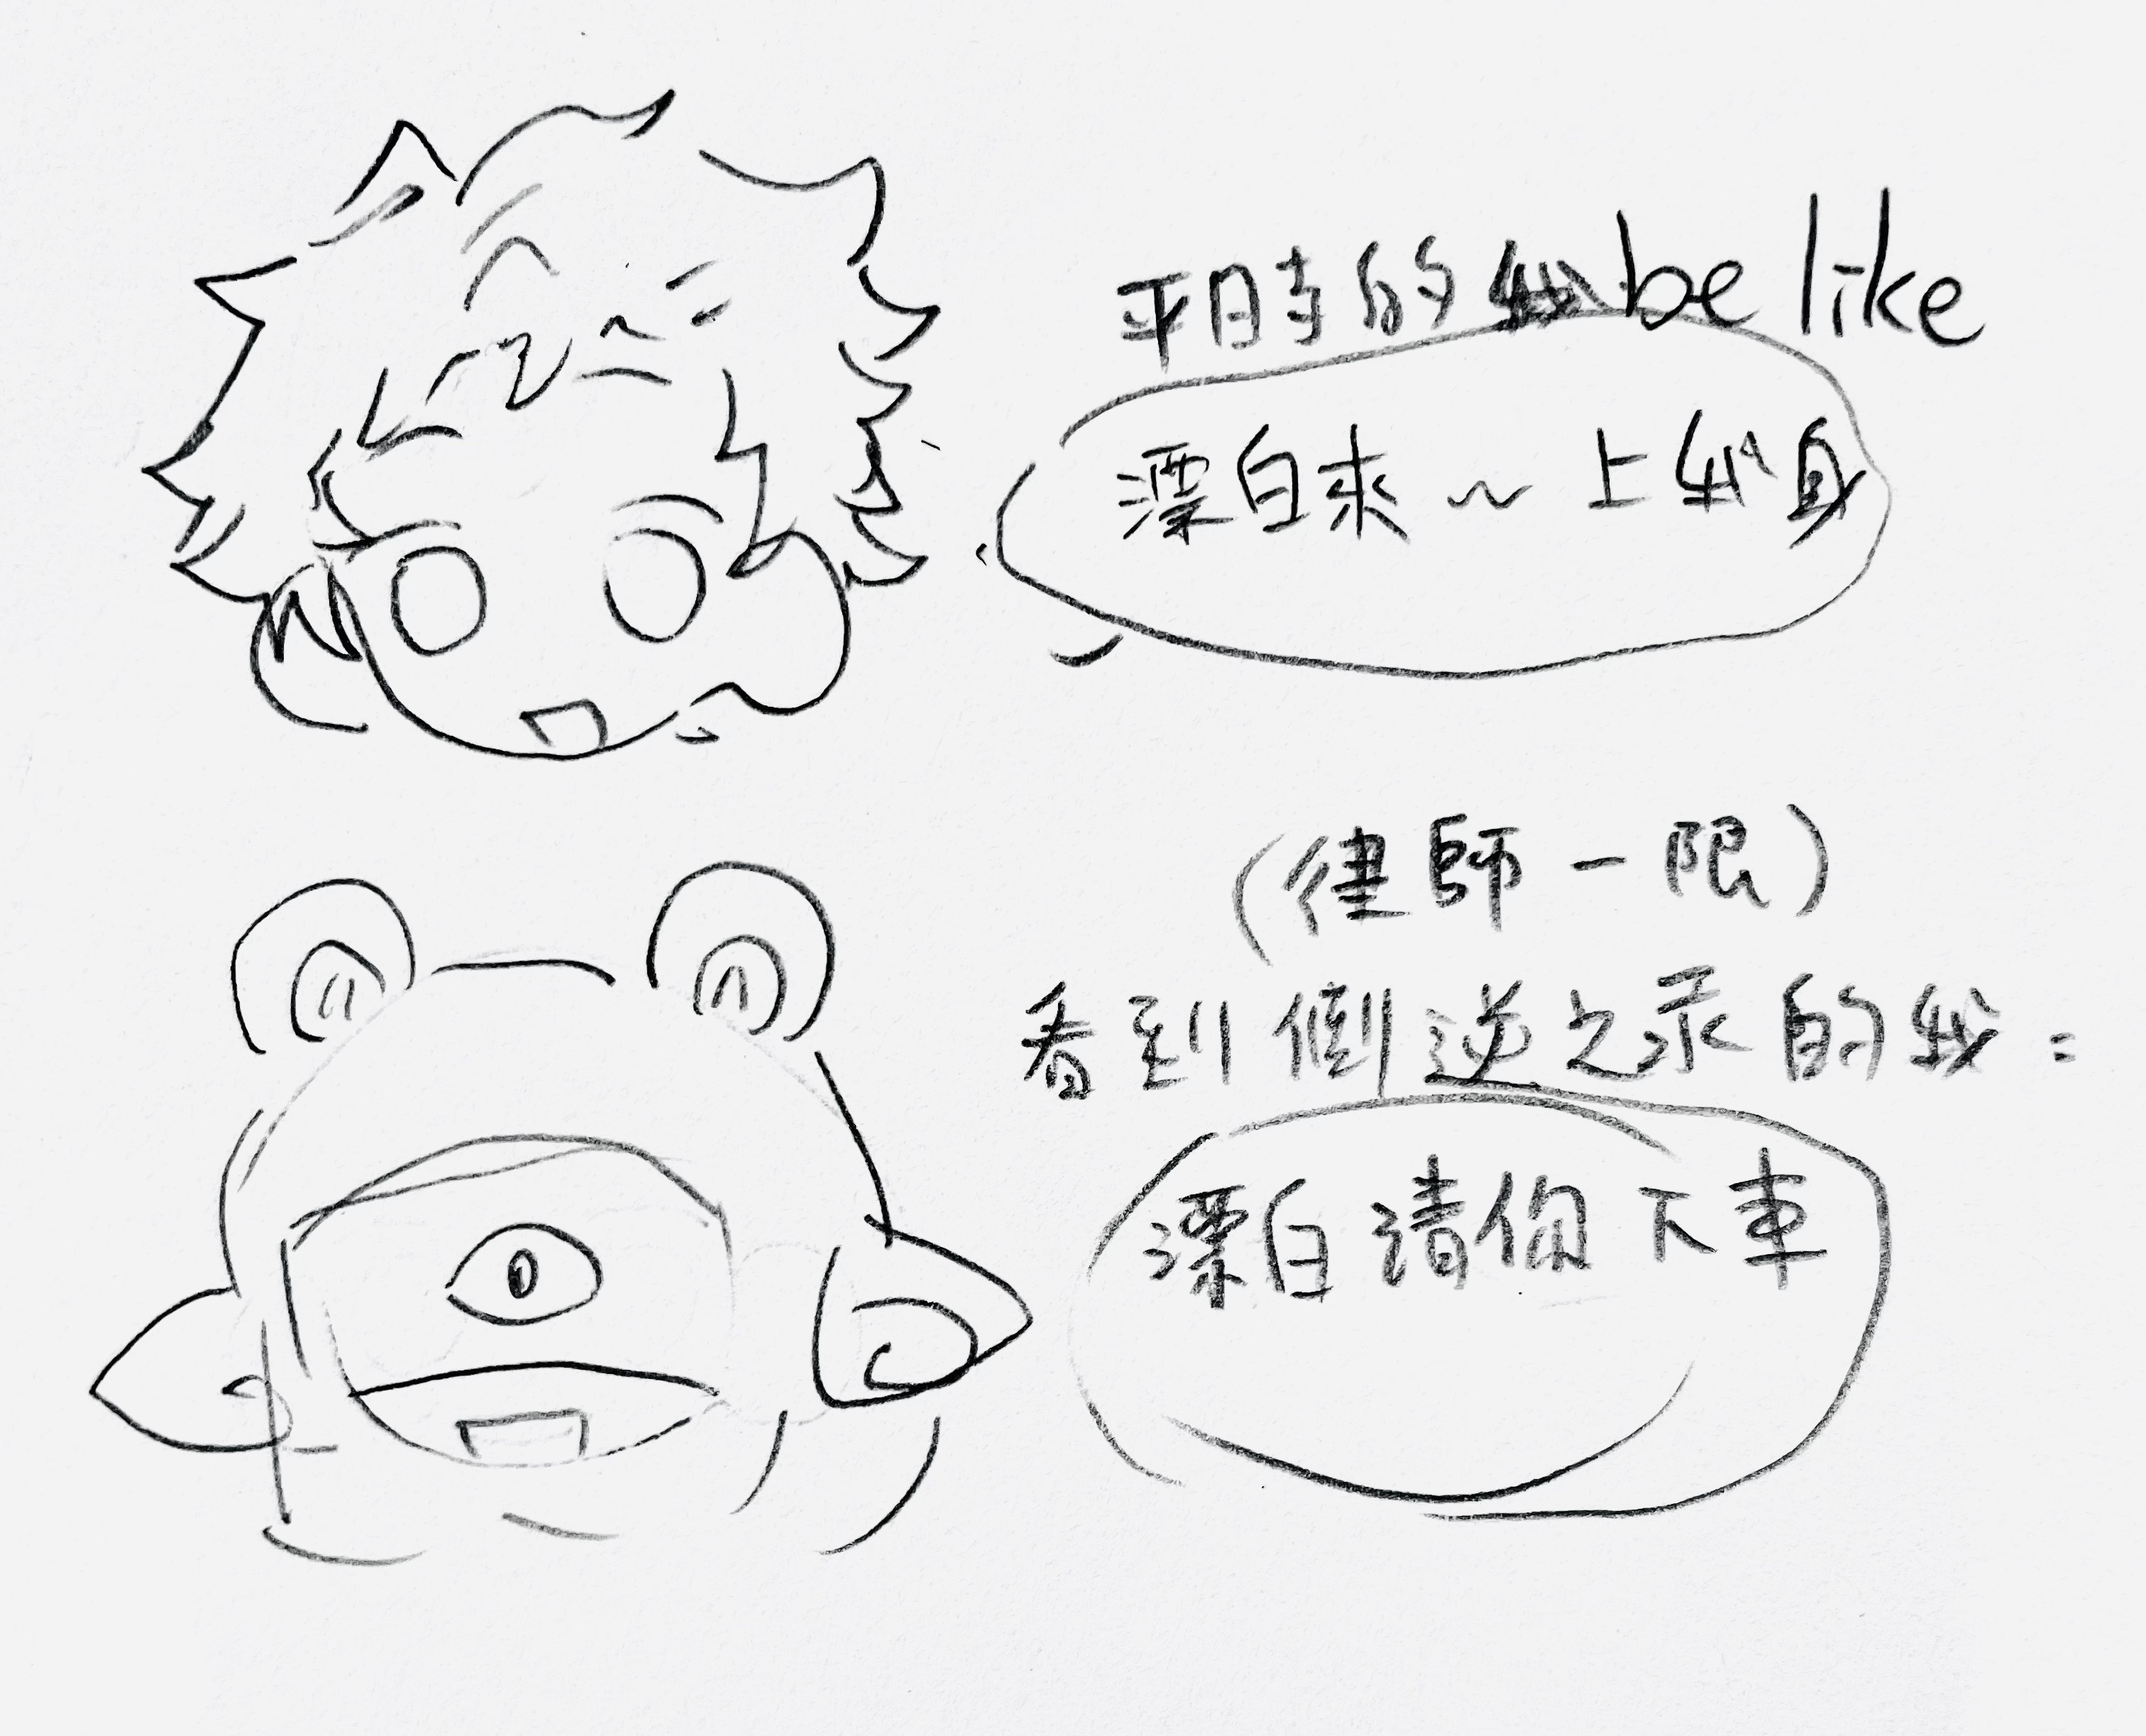 平時的我be like
漂白來~上我身
(律師一限)
看到倒逆之承的我:
漂白請你下車